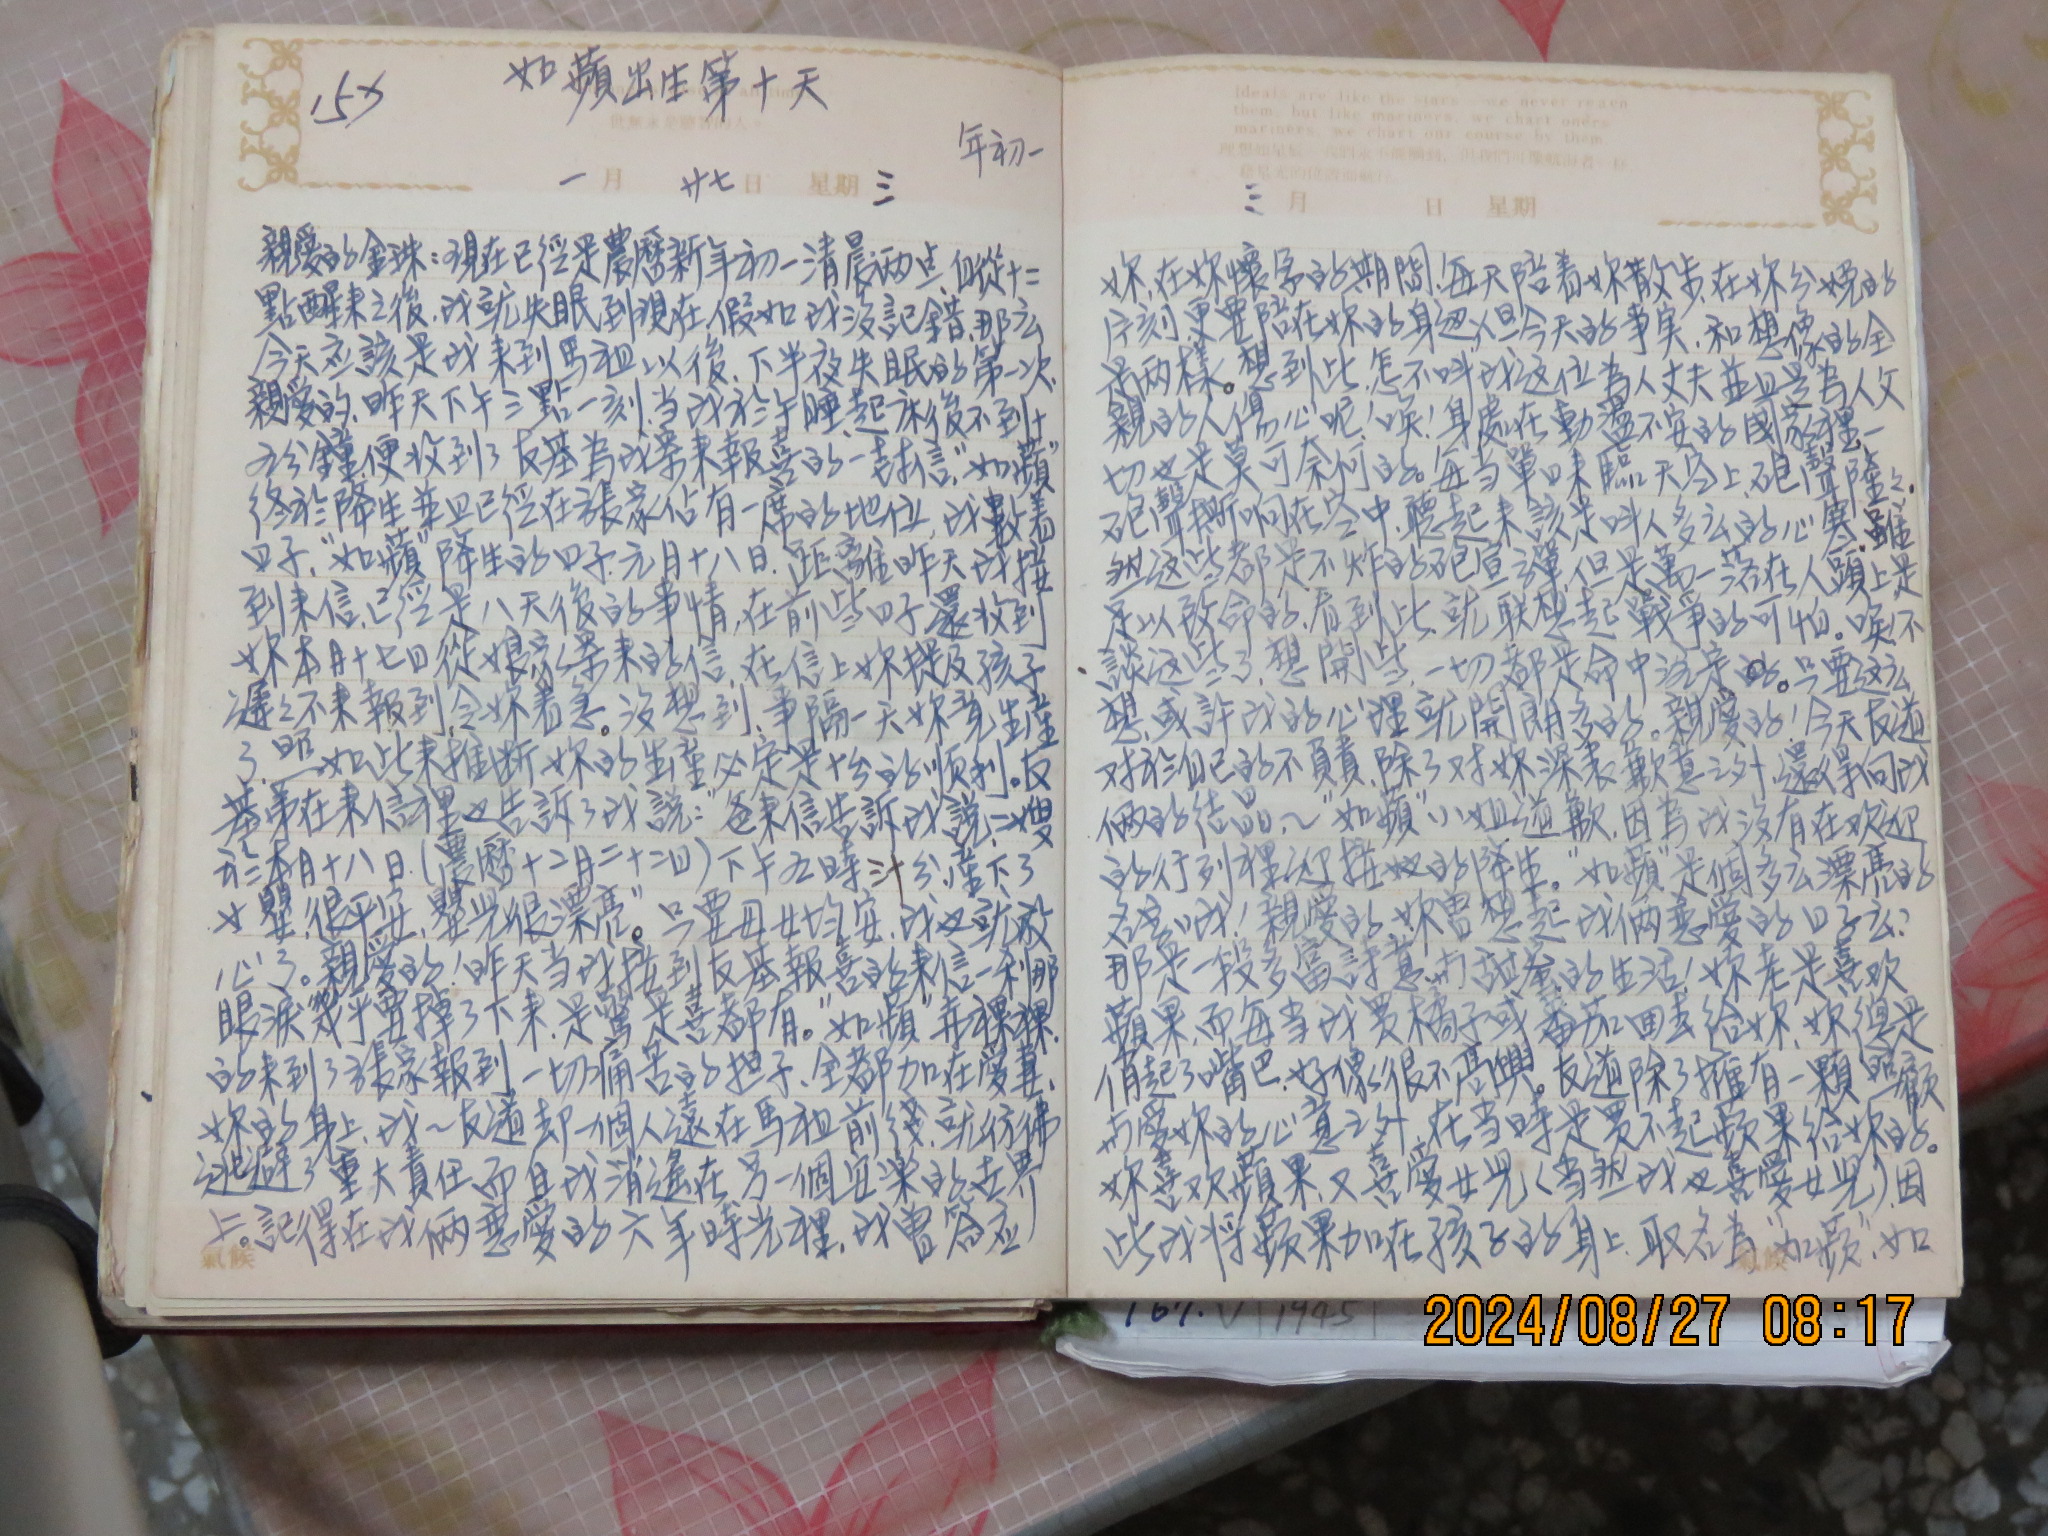 158
如蘋出生第十天
年初一
一月 廿七日 星期三
親愛的金珠:現在已經是農曆新年初一清晨兩点,自從十二
點醒來之後,我就失眠到現在,假如我沒記錯,那么
今天应該是我來到馬祖以後,下半夜失眠的第一次,
親愛的,昨天下午三點一刻,当我於午睡起床後不到十
五分鐘,便收到了友基為我寄來報喜的一封信,"如蘋"
終於降生並且已經在張家佔有一席的地位,我數着
日子,"如蘋"降生的日子,元月十八日,距離昨天我接
到來信,已經是八天後的事情,在前些日子還收到
妳本月十七日從娘家寄來的信,在信上妳提及孩子
遲之不來報到,令妳着急。沒想到,事隔一天妳竟生產
了,照如此來推断,妳的生產必定是十分的順利。友
基弟在來信裡也告訴了我說:"爸來信告訴我說,二嫂
於本月十八日,(農曆十二月二十二日)下午五時 分產下了
女嬰,很平安,嬰兒很漂亮"。只要母女均安,我也就放
心了。親愛的!昨天当我接到友基報喜的來信一剎那
眼淚幾乎要掉了下來,是驚是喜都有。"如蘋"赤裸裸
的來到了張家報到,一切痛苦的担子,全都加在愛妻,
妳的身上,我~友道却一個人遠在馬祖前綫,就彷彿
逃避了重大責任,而且我消遙在另一個宜樂的世界
上。記得在我倆戀愛的六年時光裡,我曾答应
氣候
Ideals are like the stars — we never reach
them, but like mariners, we chart our course by them
三月 日 星期
妳,在妳懷孕的期間,每天陪着妳散步,在妳分娩的
片刻,更要陪在妳的身边,但今天的事实,和想像的全
是两樣。想到此,怎不叫我这位為人丈夫並且是為人父
親的人傷心呢!唉!身處在動盪不安的國家裡,一
切也是莫可奈何的。每当單日來臨,天空上,砲聲隆之,
砲聲響在空中,聽起來該是叫人多么的心寒,雖
然这些都是不炸的砲宣彈,但是萬一落在人頭上是
足以致命的,看到此,就联想起戰爭的可怕。唉!不
談这些了,想開些,一切都是命中注定的。只要这么
想,或許我的心裡就開朗多的。親愛的!今天友道
对於自己的不負責,除了对妳深表歉意之外,還得向我
倆的結晶~"如蘋"小姐道歉,因為我沒有在欢迎
的行列裡迎接她的降生。"如蘋"是個多么漂亮的
名字!我!親愛的,妳曾想起我倆戀愛的日子么?
那是一段多富詩意而甜蜜的生活!妳老是喜欢
蘋果,而每当我買橘子或蕃茄回去給妳,妳總是
俏起了嘴巴,好像很不高興。友道除了擁有一顆 歡
而愛妳的心意之外,在当時是買不起蘋果給妳的。
妳喜欢蘋果,又喜愛女兒(当然我也喜愛女兒)因
此我將蘋果加在孩子的身上,取名為"如蘋",如
氣候
1945
2024/08/27 08:17